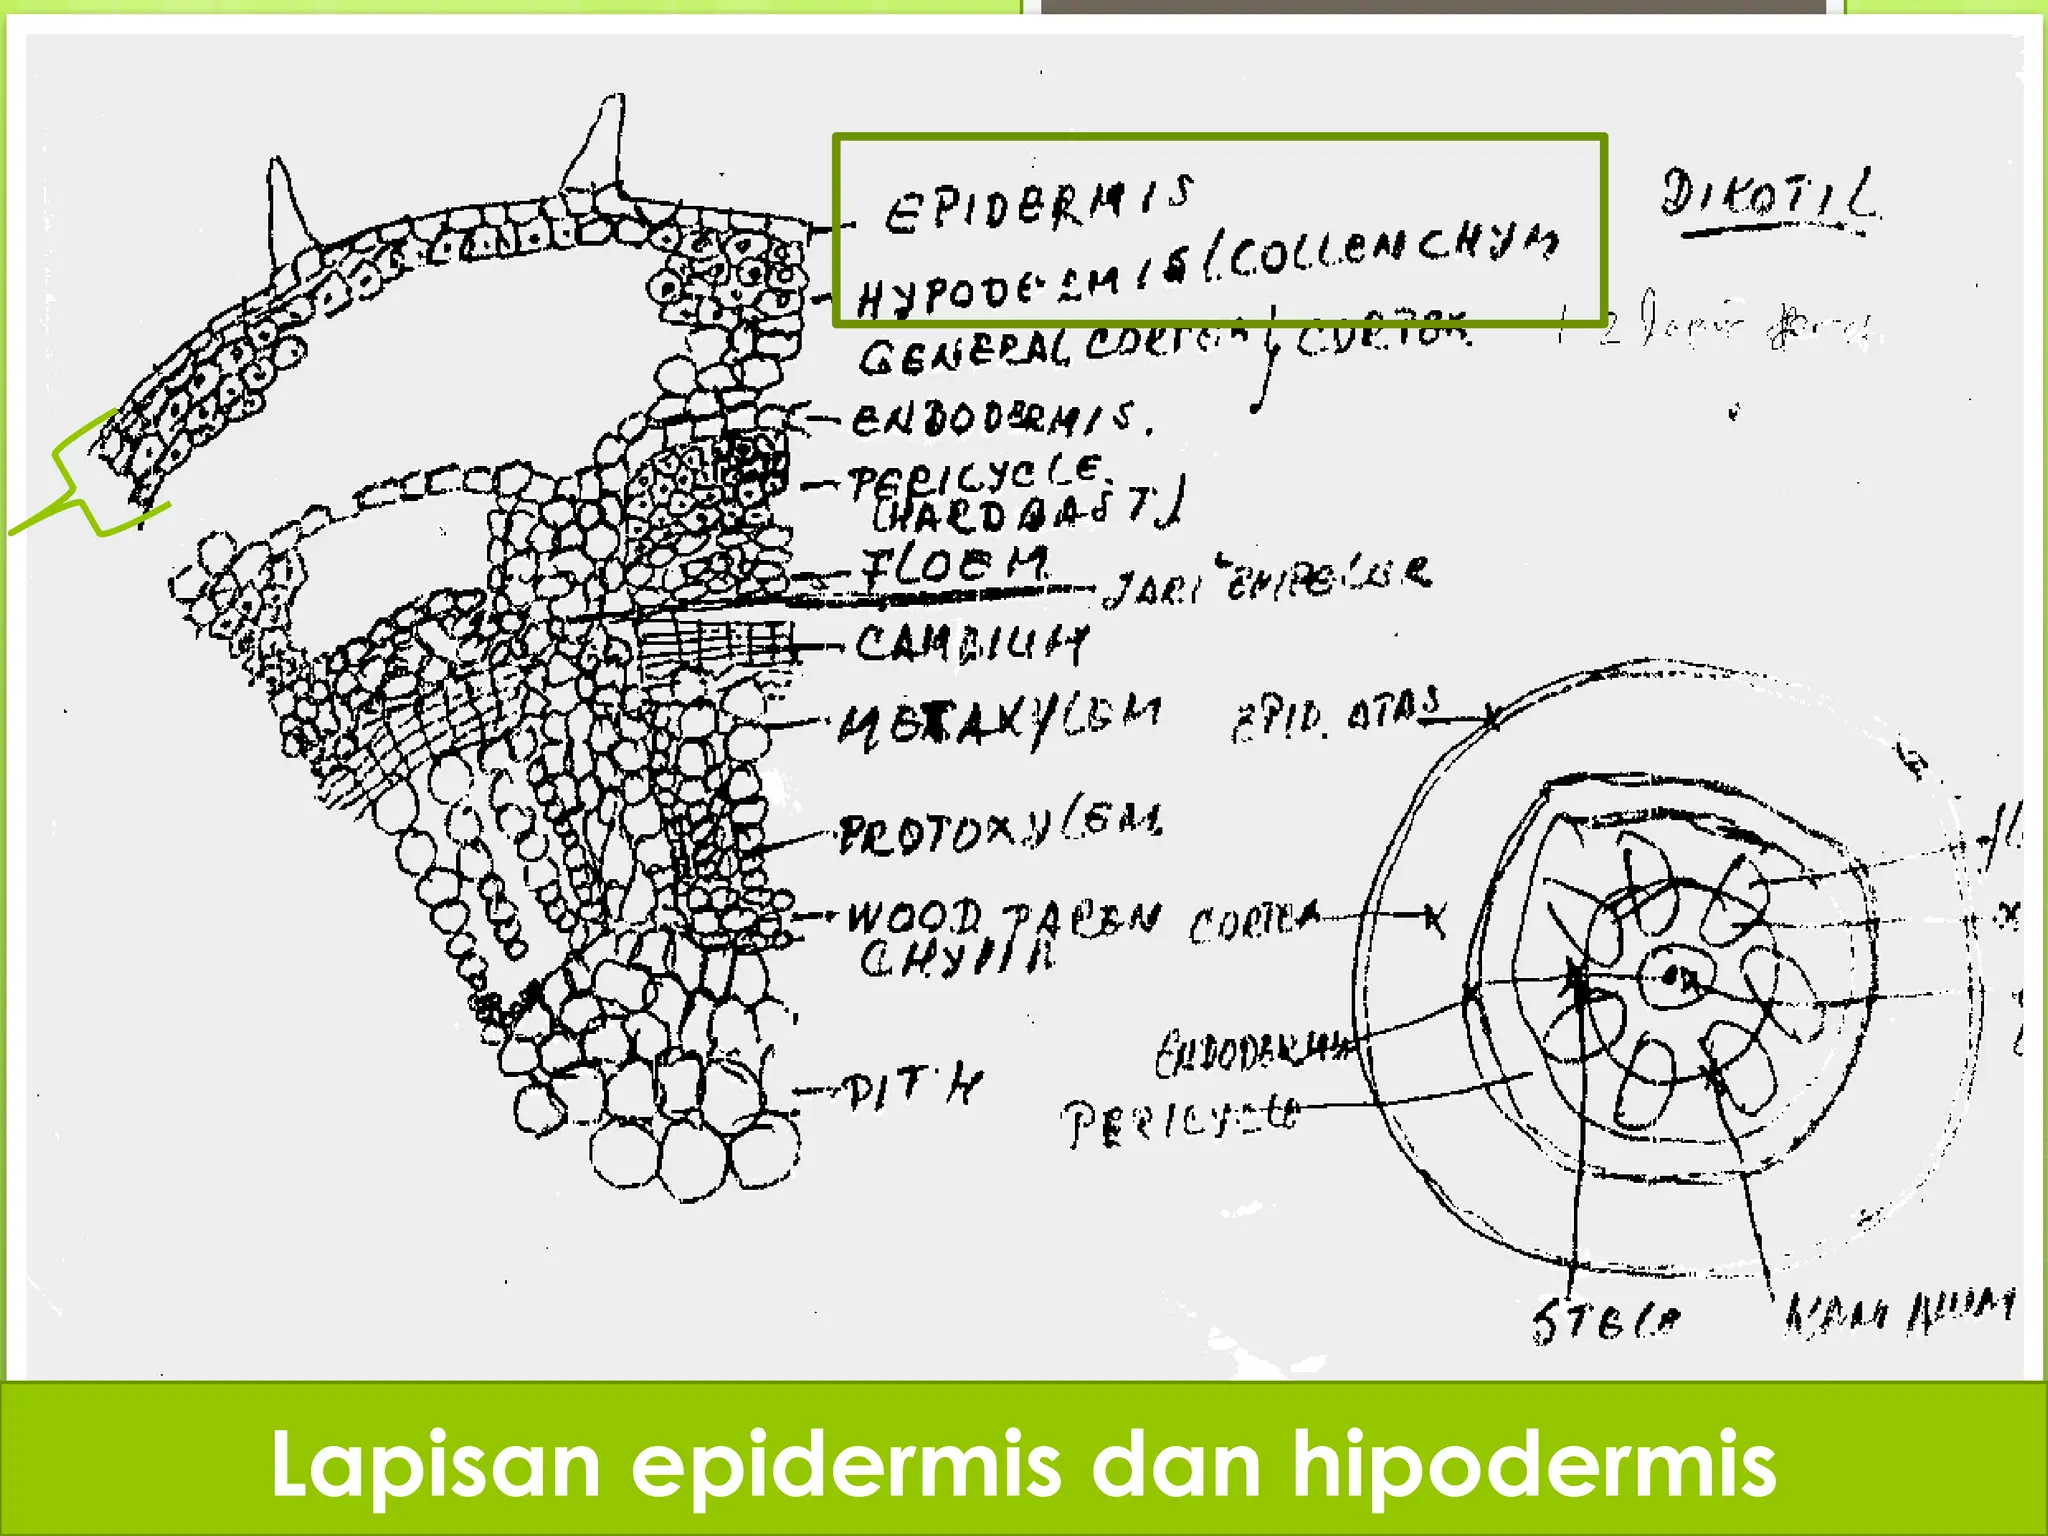 EPIDERMIS
DIKOTIL
HYPODERMIS/COLLENCHYM
GENERAL CORTEX/CORTEX
ENDODERMIS.
PERICYCLE
(HARDBAST)
FLOEM
JARI EMPELUR
CAMBIUM
METAXYLEM
EPID. ATAS
PROTOXYLEM.
WOOD PAREN
CHYMA
CORTEX
ENDODERMIS
PERICYCLE
PITH
STELE
KAMBIUM
Lapisan epidermis dan hipodermis